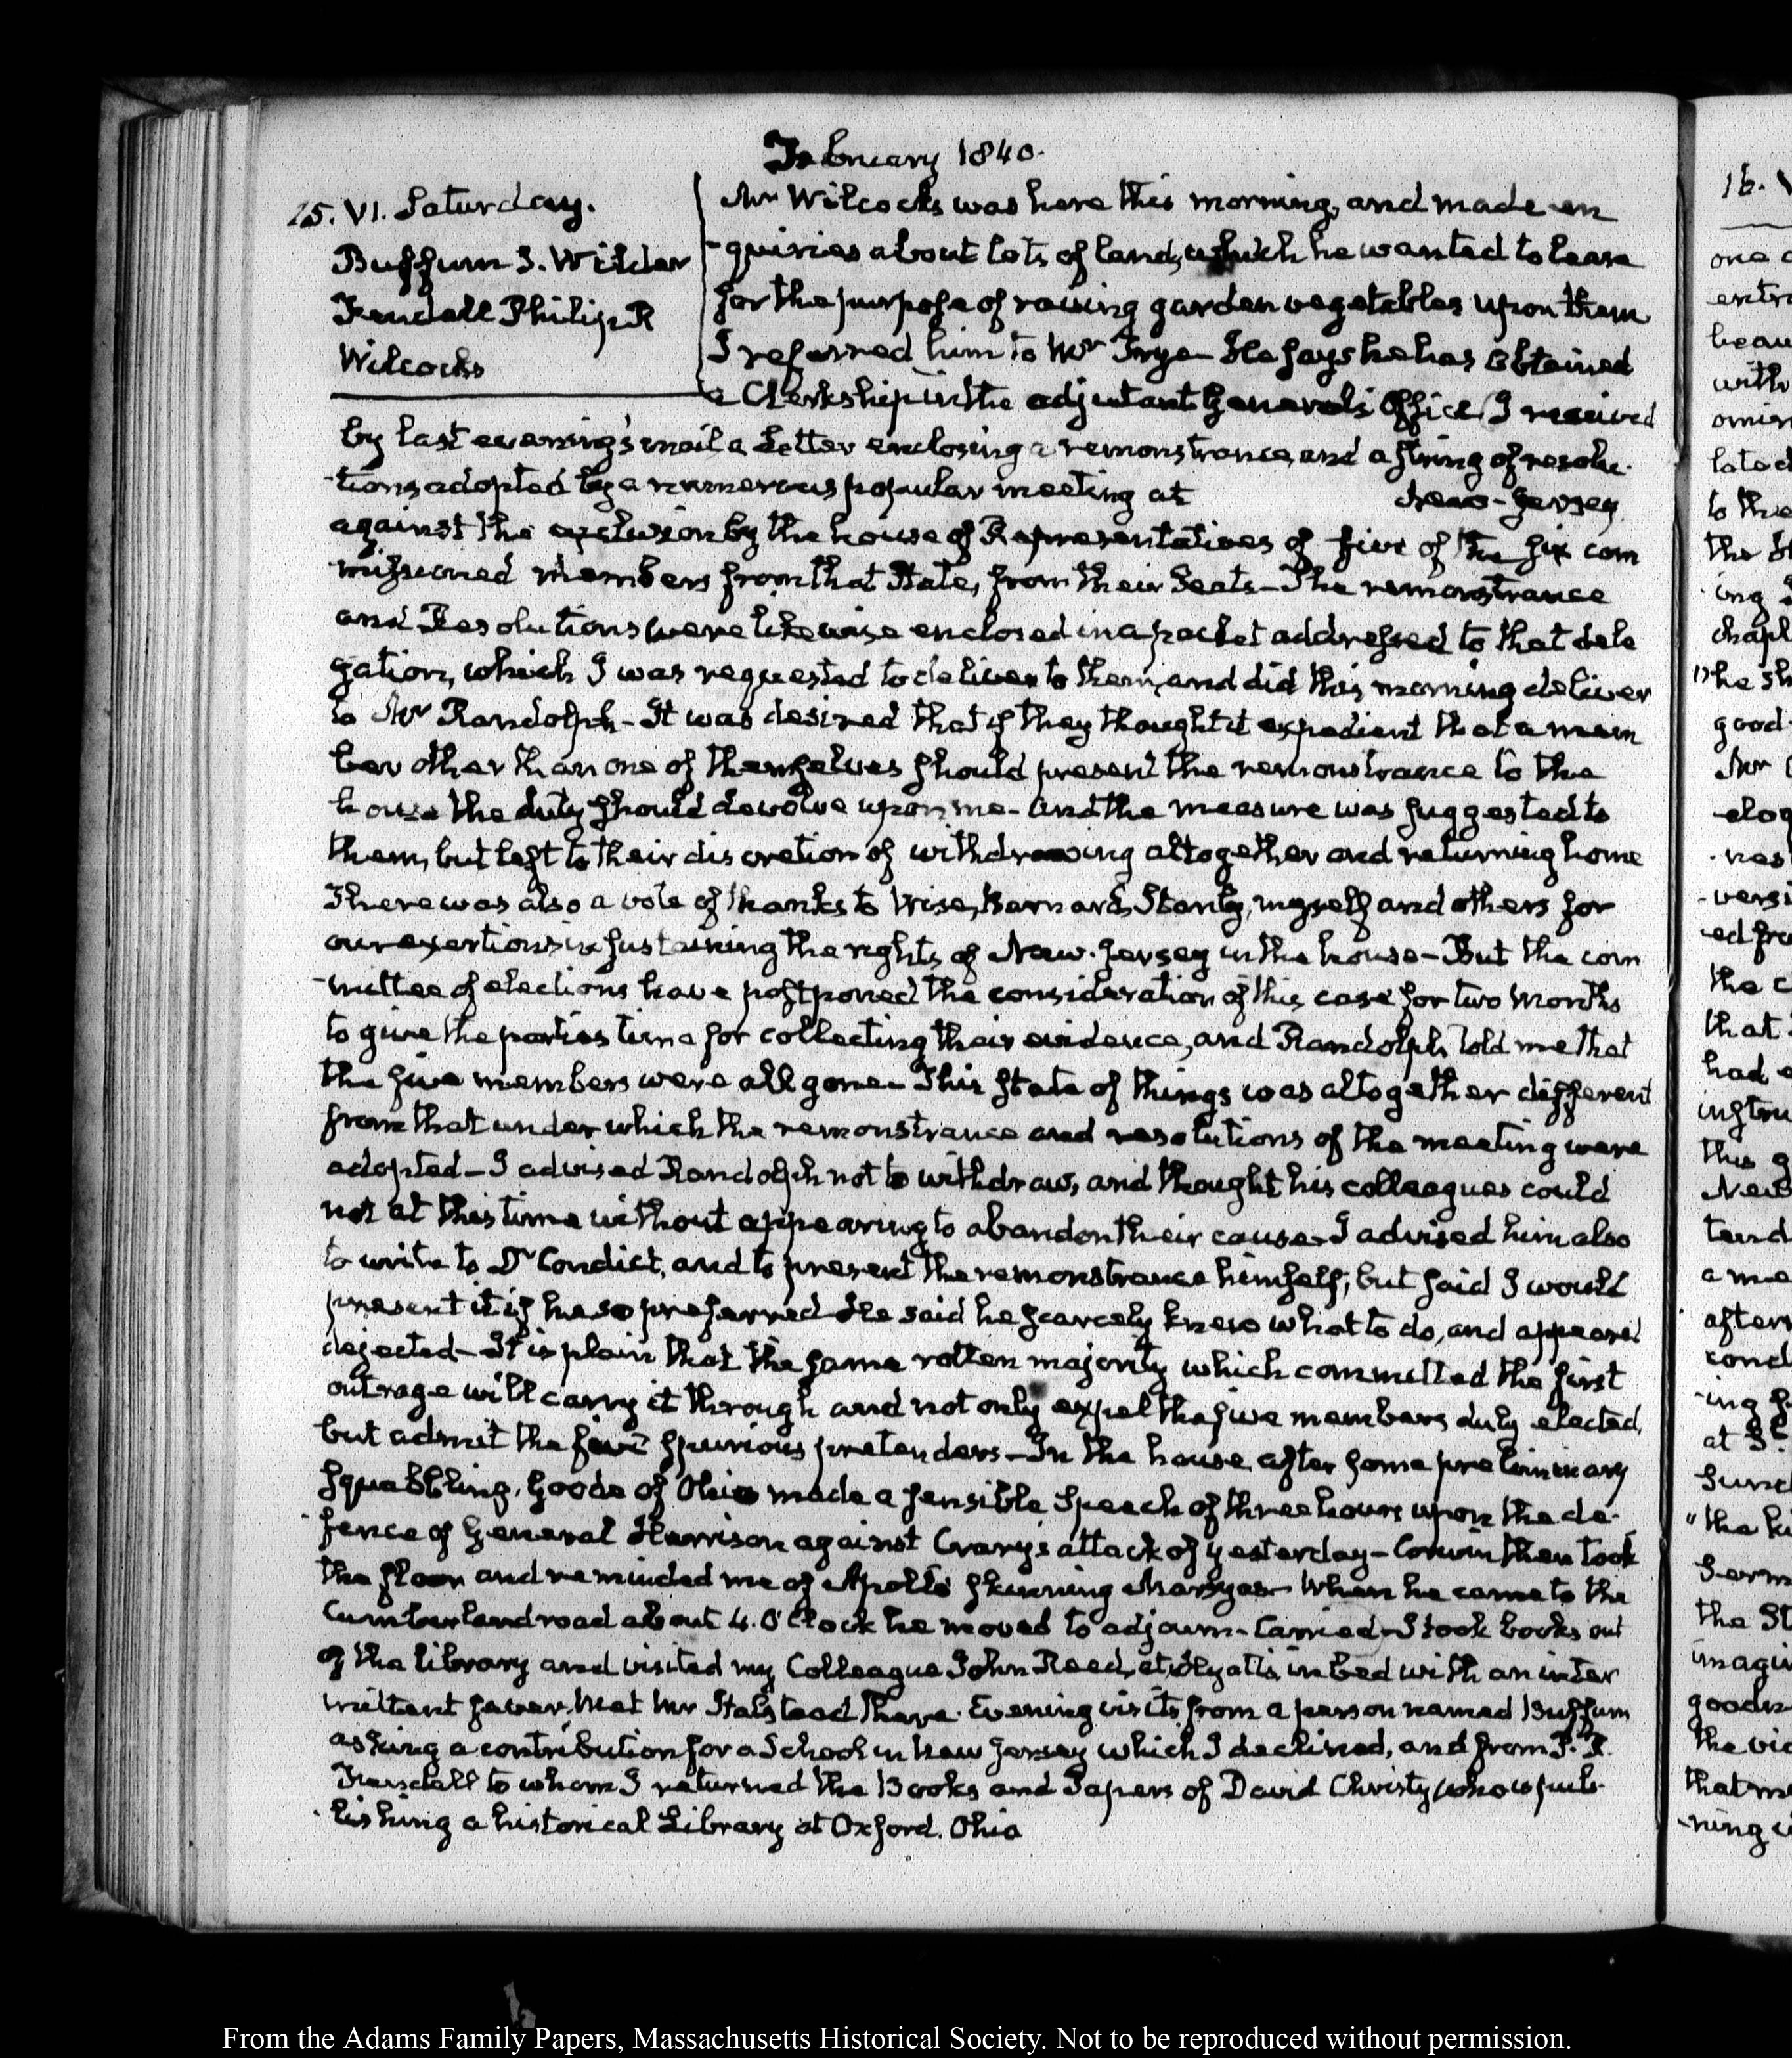 February 1840.
15. VI. Saturday.
Buffum J. Wilder
Kendall Philip R
Wilcocks
Mr Wilcocks was here this morning, and made en
-quiries about lots of land, which he wanted to lease
for the purpose of raising garden vegetables upon them
I referred him to Mr Frye— He says he has obtained
a Clerkship in the adjutant General's Office. I received
by last evening's mail a Letter enclosing a remonstrance, and a string of resolu-
-tions adopted by a numerous popular meeting at New-Jersey
against the exclusion by the house of Representatives of five of the six com
missioned members from that State, from their Seats— The remonstrance
and Resolutions were likewise enclosed in a packet addressed to that dele
gation, which I was requested to deliver to them, and did this morning deliver
to Mr Randolph— It was desired that if they thought it expedient that a mem
ber other than one of themselves should present the remonstrance to the
house the duty should devolve upon me— and the measure was suggested to
them, but left to their discretion of withdrawing altogether and returning home
There was also a vote of thanks to Wise, Barnard, Stanly, myself and others for
our exertions in sustaining the rights of New-Jersey in the house— But the com
-mittee of elections have postponed the consideration of this case for two Months
to give the parties time for collecting their evidence, and Randolph told me that
the five members were all gone— This state of things was altogether different
from that under which the remonstrance and resolutions of the meeting were
adopted— I advised Randolph not to withdraw, and thought his colleagues could
not at this time without appearing to abandon their cause— I advised him also
to write to Dr Condict, and to present the remonstrance himself; but said I would
present it if he so preferred— He said he scarcely knew what to do, and appeared
dejected— It is plain that the same rotten majority which committed the first
outrage will carry it through and not only expel the five members duly elected,
but admit the five spurious pretenders— In the house after some preliminary
squabbling, Goode of Ohio made a sensible Speech of three hours upon the de-
-fence of General Harrison against Crary's attack of yesterday— Corwin then took
the floor and reminded me of Apollo skinning Marsyas— When he came to the
Cumberland road about 4. O'Clock he moved to adjourn— Carried— I took books out
of the library and visited my Colleague John Reed, at Hyatt's, in bed with an inter
mittent fever. Met Mr Halstead there. Evening visits from a person named Buffum
asking a contribution for a School in New Jersey which I declined, and from P. R.
Kendall to whom I returned the Books and Papers of David Christy who is pub-
-lishing a historical Library at Oxford. Ohio
16.
one
beau
with
to the
good
Mr
the
that
had
this
tend
a me
at
the
the St
goodn
the vic
that m
From the Adams Family Papers, Massachusetts Historical Society. Not to be reproduced without permission.